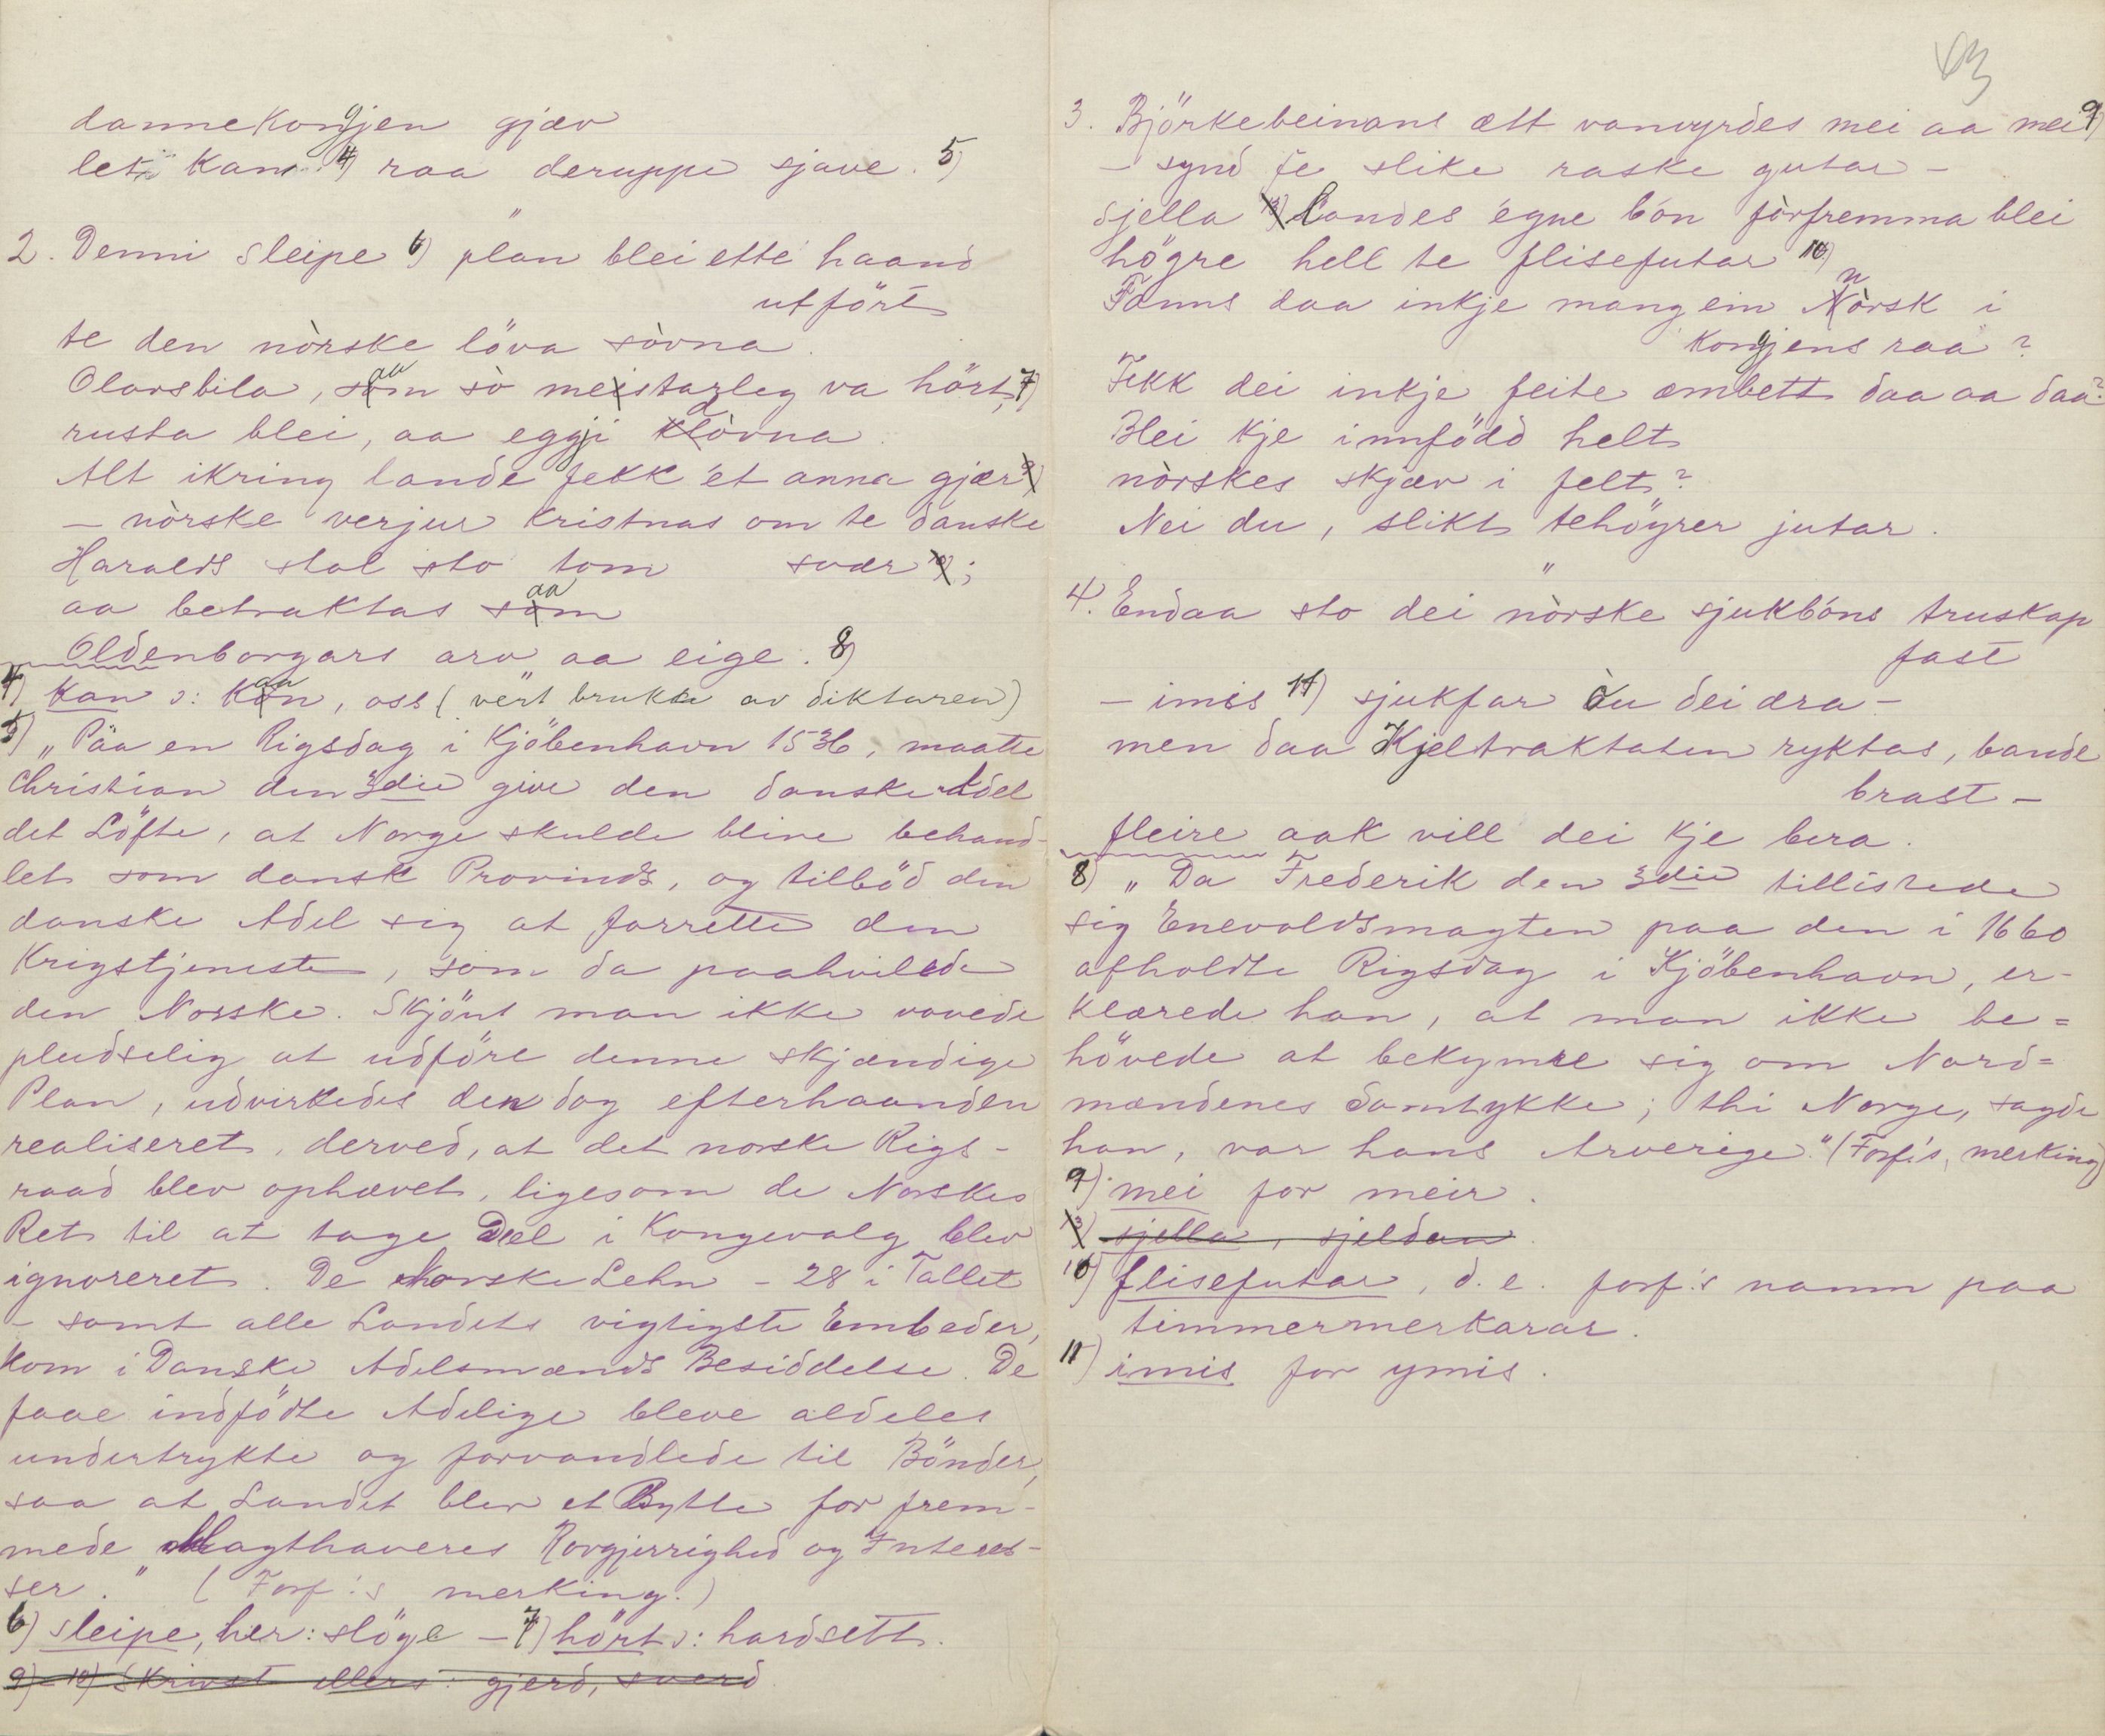 dannekongjen gjæv
let kan 4) raa deruppe sjave. 5)
"
2. Denni sleipe 6) plan blei ette haand
utfört
te den nòrske löva sòvna.
Olavsbila, saam sò mestarleg va hört, 7)
rusta blei, aa eggji dòvna.
Alt ikring lande fekk ét anna gjær
— nòrske verjur kristnas om te danske
svær;
Haralds stol sto tom
aa betraktas saam
Oldenborgars arv aa eige. 8)
4) kan ɔ: kaan, oss (vert brukt av diktaren)
5) „Paa en Rigsdag i Kjöbenhavn 1536, maatte
Christian den 3die give den danske Adel
det Löfte, at Norge skulde blive behand-
let som dansk Provinds, og tilböd den
danske Adel sig at forrette den
Krigstjeneste, som da paahvilede
den Norske. Skjönt man ikke vovede
pludselig at udföre denne skjændige
Plan, udvirkedes den dog efterhaanden
realiseret, derved, at det norske Rigs-
raad blev ophævet, ligesom de Norskes
Ret til at tage Del i Kongevalg blev
ignoreret. De Norske Lehn – 28 i Tallet
– samt alle Landets vigtigste Embeder,
kom i Danske Adelsmænds Besiddelse. De
faae indfödte Adelige bleve aldeles
undertrykte og forvandlede til Bönder,
saa at Landet blev et Bytte for frem-
mede Magthaveres Rovgjerrighed og Interes-
ser." (Forf.'s merking.)
6) sleipe, her: slöge – 7) hört ɔ: hardsett.
9) – 10) skrivst ellers: gjerd, sverd
63
3. Björkebeinans ætt vanvyrdes mei aa mei 9)
– synd fe slike raske gutar –
sjella landes egne bón fòrfremma blei
högre hell te flisefutar 10)
Fanns daa inkje mang ein nòrsk i
kongjens raa?
Fekk dei inkje feite æmbett daa aa daa?
Blei kje innfödd helt
nòrskes skjæv i felt?
Nei du, slikt tehöyrer jutar.
"
4. Endaa sto dei nòrske sjukbóns truskap
fast
– imis 11) sjukfar du dei æra –
men daa Kjeltraktaten ryktas, bande
brast –
fleire aak vill dei kje bera.
8) „Da Frederik den 3die tillistede
sig Enevoldsmagten paa den i 1660
afholdte Rigsdag i Kjöbenhavn, er-
klærede han, at man ikke be=
hövede at bekymre sig om Nord=
mændenes Samtykke; thi Norge, sagde
han, var hans Arverige." (Forf.'s, merking)
9) mei for meir.
13) sjella, sjeldan.
10) flisefutar, d. e. forf.'s namn paa
timmermerkarar.
11) imis for ymis.